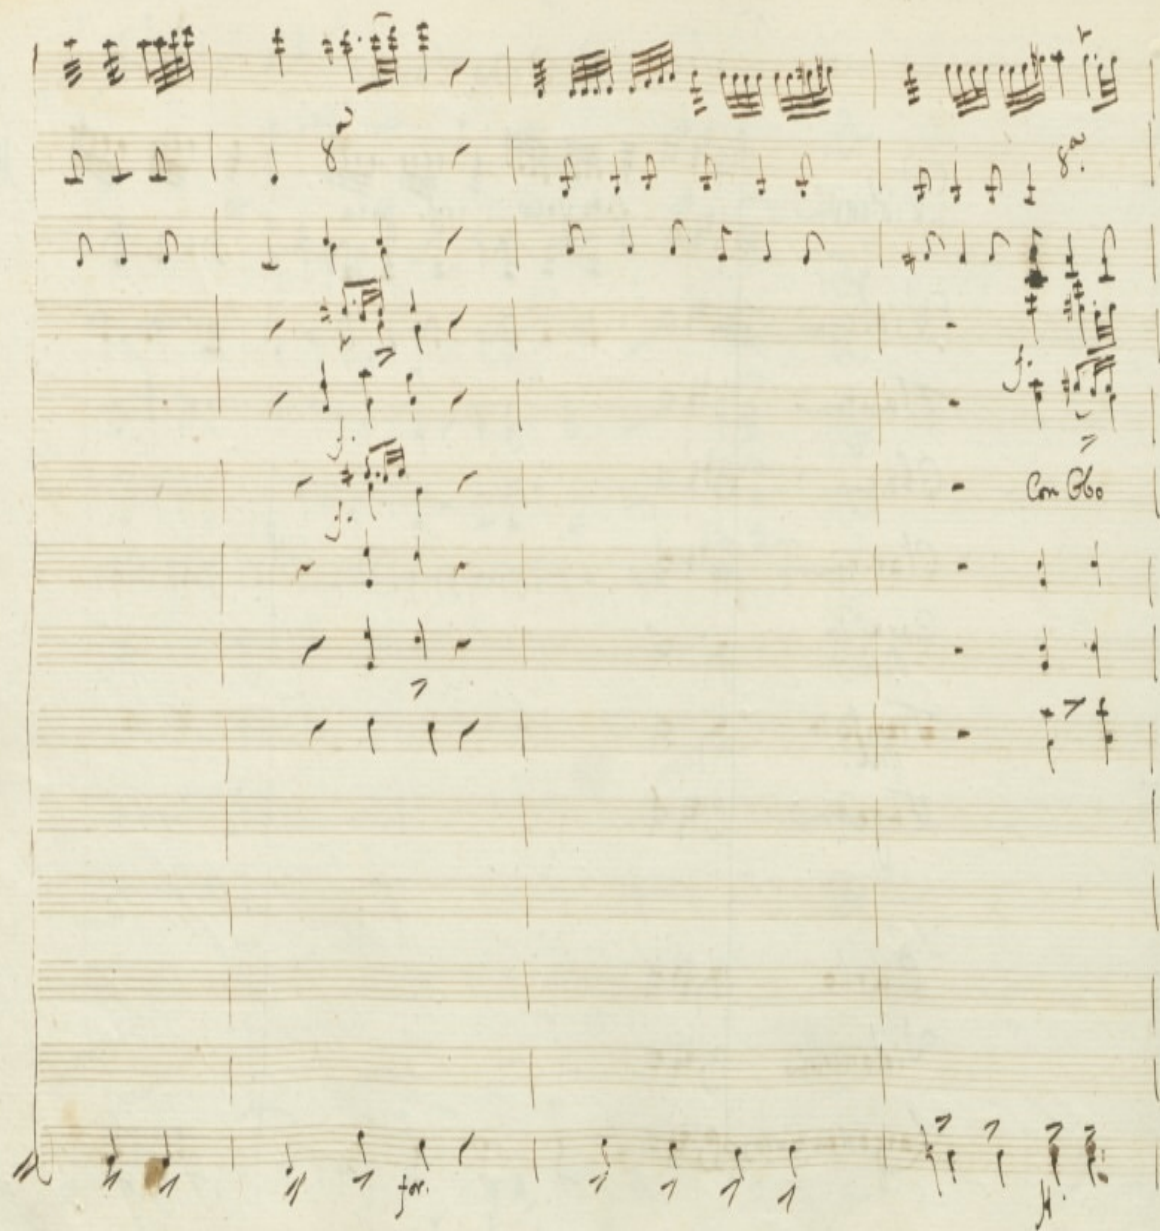 8a
8a.
f.
f.
f.
Con Obo
for.